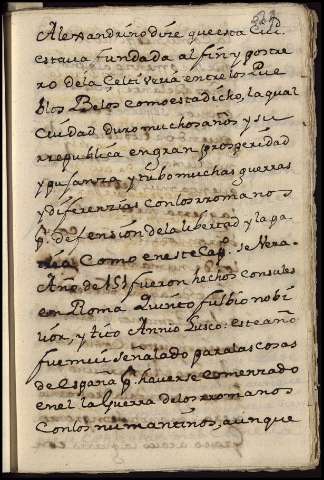 Alexandrino dize que esta Ciud.
estava fundada al fin y postre
ro de la Çeltiveria entre los Pue
blos Belos como esta dicho, la qual
Ciudad duro muchos años y su
rrepublica en gran prosperidad
y pusanza, y tubo muchas guerras
y diferenzias con los rromanos
p. defension de la libertad y la pa
tria, Como en este Cap. se Vera
Año de 151 fueron hechos consules
en Roma Quinto fulbio nobi
lior, y tito Annio Lusco: este año
fue mui señalado para las cosas
de España p. haverse comenzado
en el la Guerra de los rromanos
Con los numantinos, aunque